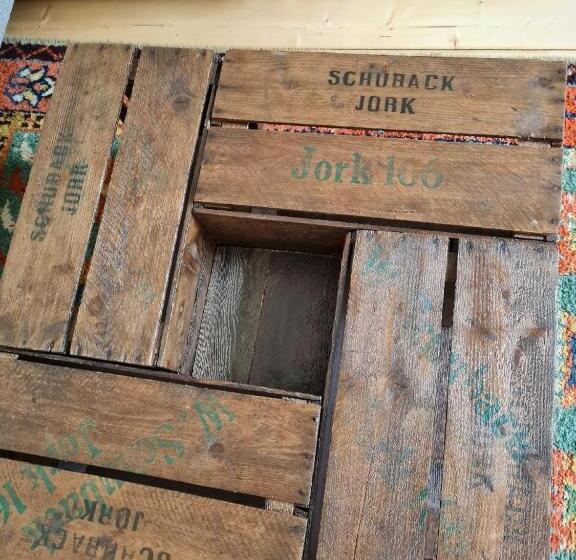 SCHUBACK
JORK
Jork 166
SCHUBACK
JORK
W. Schuback
Jork 16
SCHUBACK
JORK